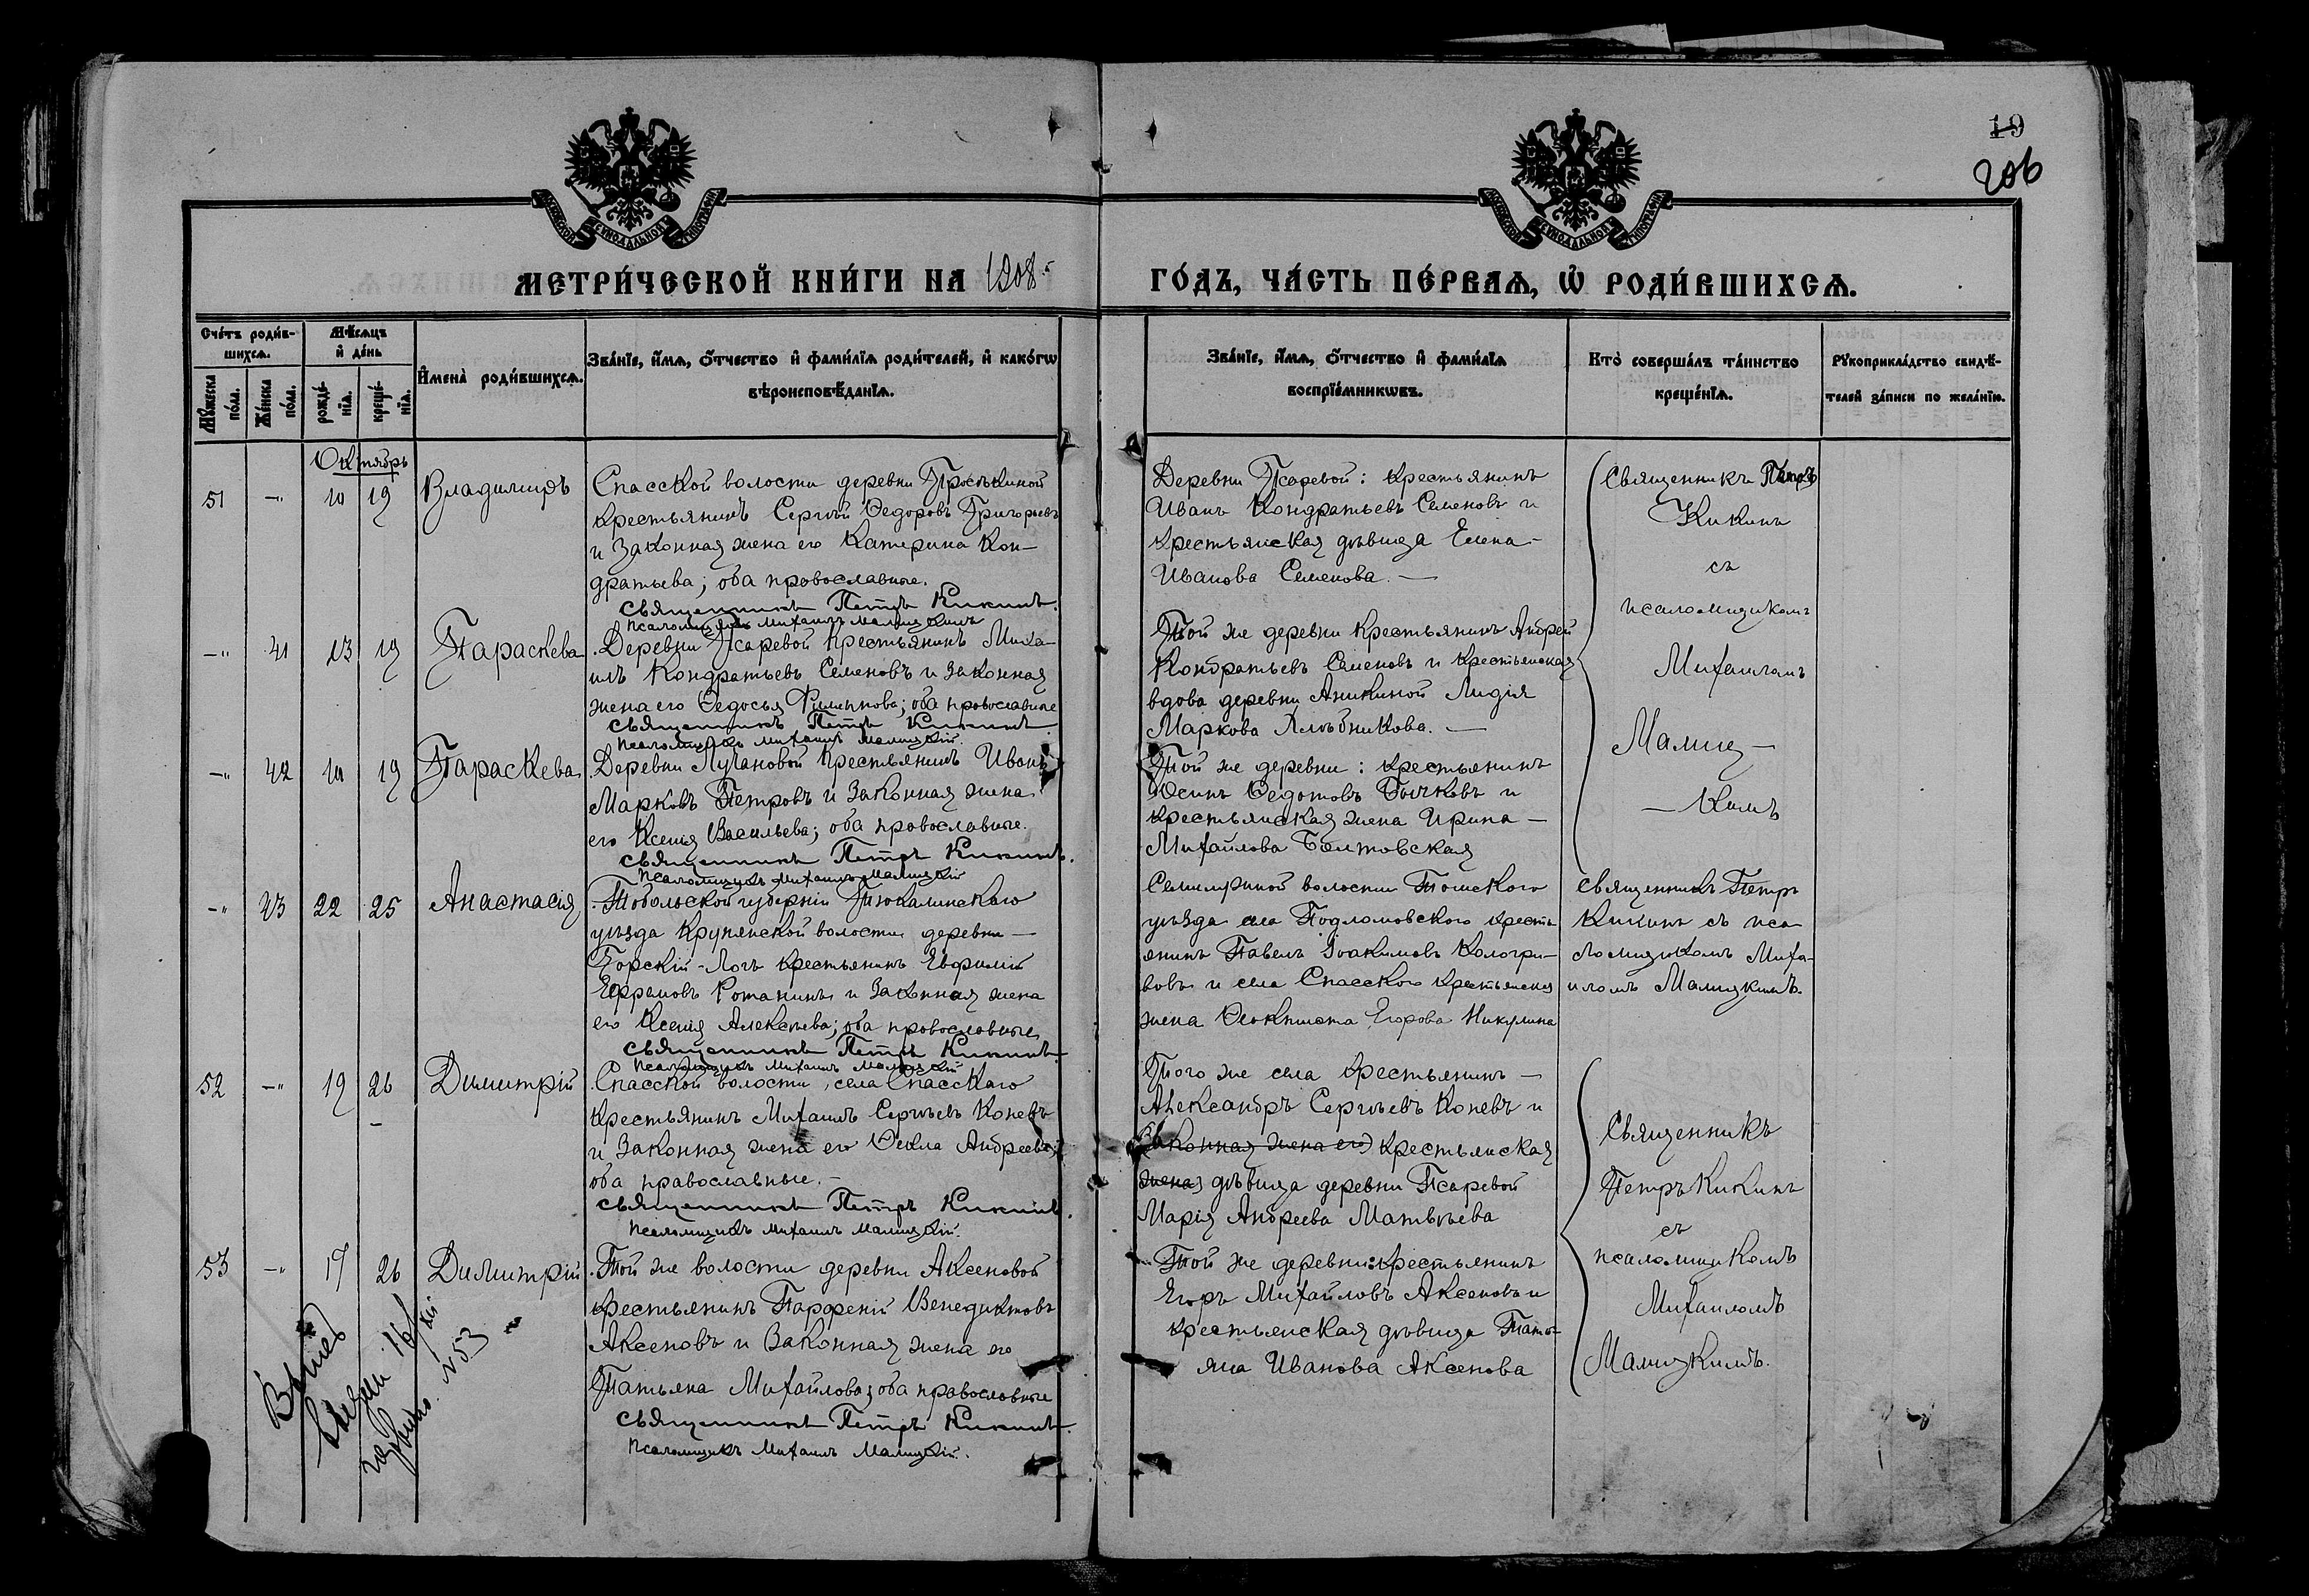 19
206
МОСКОВСКОЙ СУНОДАЛЬНОЙ ТИПОГРАФІИ
МОСКОВСКОЙ СУНОДАЛЬНОЙ ТИПОГРАФІИ
МЕТРИ́ЧЕСКОЙ КНИ́ГИ НА 1908
ГО́ДЪ, ЧА́СТЬ ПЕ́РВАѦ, Ѡ҆ РОДИ́ВШИХСѦ.
Сче́тъ роди́в-
шихсѧ.
Мѣ́сѧцъ
и҆ де́нь
Мꙋ́жеска
по́ла.
Же́нска
по́ла.
рожде́-
нїѧ.
креще́-
нїѧ.
И҆мена̀ роди́вшихсѧ.
Зва́нїе, и҆́мѧ, ѻ҆́тчество и҆ фами́лїѧ роди́телей, и҆ како́гѡ
вѣроисповѣ́данїѧ.
Зва́нїе, и҆́мѧ, ѻ҆́тчество и҆ фами́лїѧ
воспрїе́мникѡвъ.
Кто̀ соверша́лъ та́инство
креще́нїѧ.
Рꙋкоприкла́дство свидѣ́-
телей за́писи по жела́нїю.
Октябрь
51 -" 10 19 Владимиръ
Спасской волости деревни Просѣкиной
крестьянинъ Сергѣй Ѳедоровъ Григорьевъ
и законная жена его Катерина Кон-
дратьева; оба провославные.
Священникъ Петръ Кикинъ.
Псаломщикъ Михаилъ Малицкій
Деревни Псаревой: крестьянинъ
Иванъ Кондратьевъ Семеновъ и
крестьянская дѣвица Елена-
Иванова Семенова. —
Священникъ Петръ
Кикинъ
съ
псаломщикомъ
Михаиломъ
Малиц—
—кимъ
-" 41 13 19 Параскева
Деревни Псаревой крестьянинъ Миха-
илъ Кондратьевъ Семеновъ и законная
жена его Ѳедосья Филиппова; оба провославные
Священникъ Петръ Кикинъ
Псаломщикъ Михаилъ Малицкій.
Той же деревни крестьянинъ Андрей
Кондратьевъ Семеновъ и крестьянская
вдова деревни Аникиной Лидія
Маркова Хлѣбникова. —
-" 42 10 19 Параскева
Деревни Лучановой крестьянинъ Иванъ
Марковъ Петровъ и законная жена
его Ксенія Васильева; оба провославные.
Священникъ Петръ Кикинъ.
Псаломщикъ Михаилъ Малицкій
Той же деревни: крестьянинъ
Осипъ Ѳедотовъ Бычковъ и
крестьянская жена Ирина —
Михайлова Болтовская
-" 43 22 25 Анастасія
Тобольской губерніи Тюкалинскаго
уѣзда Крупянской волости деревни —
Горскій-Логъ крестьянинъ Евфимій
Ефремовъ Ротанинъ и законная жена
его Ксенія Алексѣева; оба провославные
Священникъ Петръ Кикинъ
Псаломщикъ Михаилъ Малицкій
Семилужной волости Томского
уѣзда села Подломовского кресть-
янинъ Павелъ Іоакимовъ Кологри-
вовъ и села Спасского крестьянская
жена Ѳеоктиста Егорова Никулина
Священникъ Петръ
Кикинъ съ пса
ломщикомъ Миха-
иломъ Малицкимъ.
52 -" 19 26 Димитрій
Спасской волости, села Спасскаго
крестьянинъ Михаилъ Сергѣевъ Коневъ
и законная жена его Ѳекла Андреева;
оба православные. -
Священникъ Петръ Кикинъ.
Псаломщикъ Михаилъ Малицкій.
Того же села крестьянинъ —
Александръ Сергѣевъ Коневъ и
(законная жена его) крестьянская
(жена) дѣвица деревни Псаревой
Марія Андреева Матвѣева
Священникъ
Петръ Кикинъ
съ
псаломщикомъ
Михаиломъ
Малицкимъ.
53 -" 17 26 Димитрій
Той же волости деревни Аксеновой
крестьянинъ Парфеній Венедиктовъ
Аксеновъ и законная жена его
Татьяна Михайлова; оба православные
Священникъ Петръ Кикинъ.
Псаломщикъ Михаилъ Малицкій.
Той же деревни: крестьянинъ
Егоръ Михайловъ Аксеновъ и
крестьянская дѣвица Тать-
яна Иванова Аксенова
№ 53